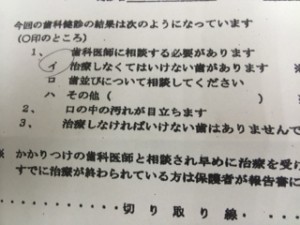 今回の歯科健診の結果は次のようになっています
(○印のところ)
1、 歯科医師に相談する必要があります
イ 治療しなくてはいけない歯があります ※
ロ 歯並びについて相談してください
ハ その他( )
2、 口の中の汚れが目立ちます
3、 治療しなければいけない歯はありませんで
※ かかりつけの歯科医師と相談され早めに治療を受け
すでに治療が終わられている方は保護者が報告書に
・・・・・・切り取り線・・・・